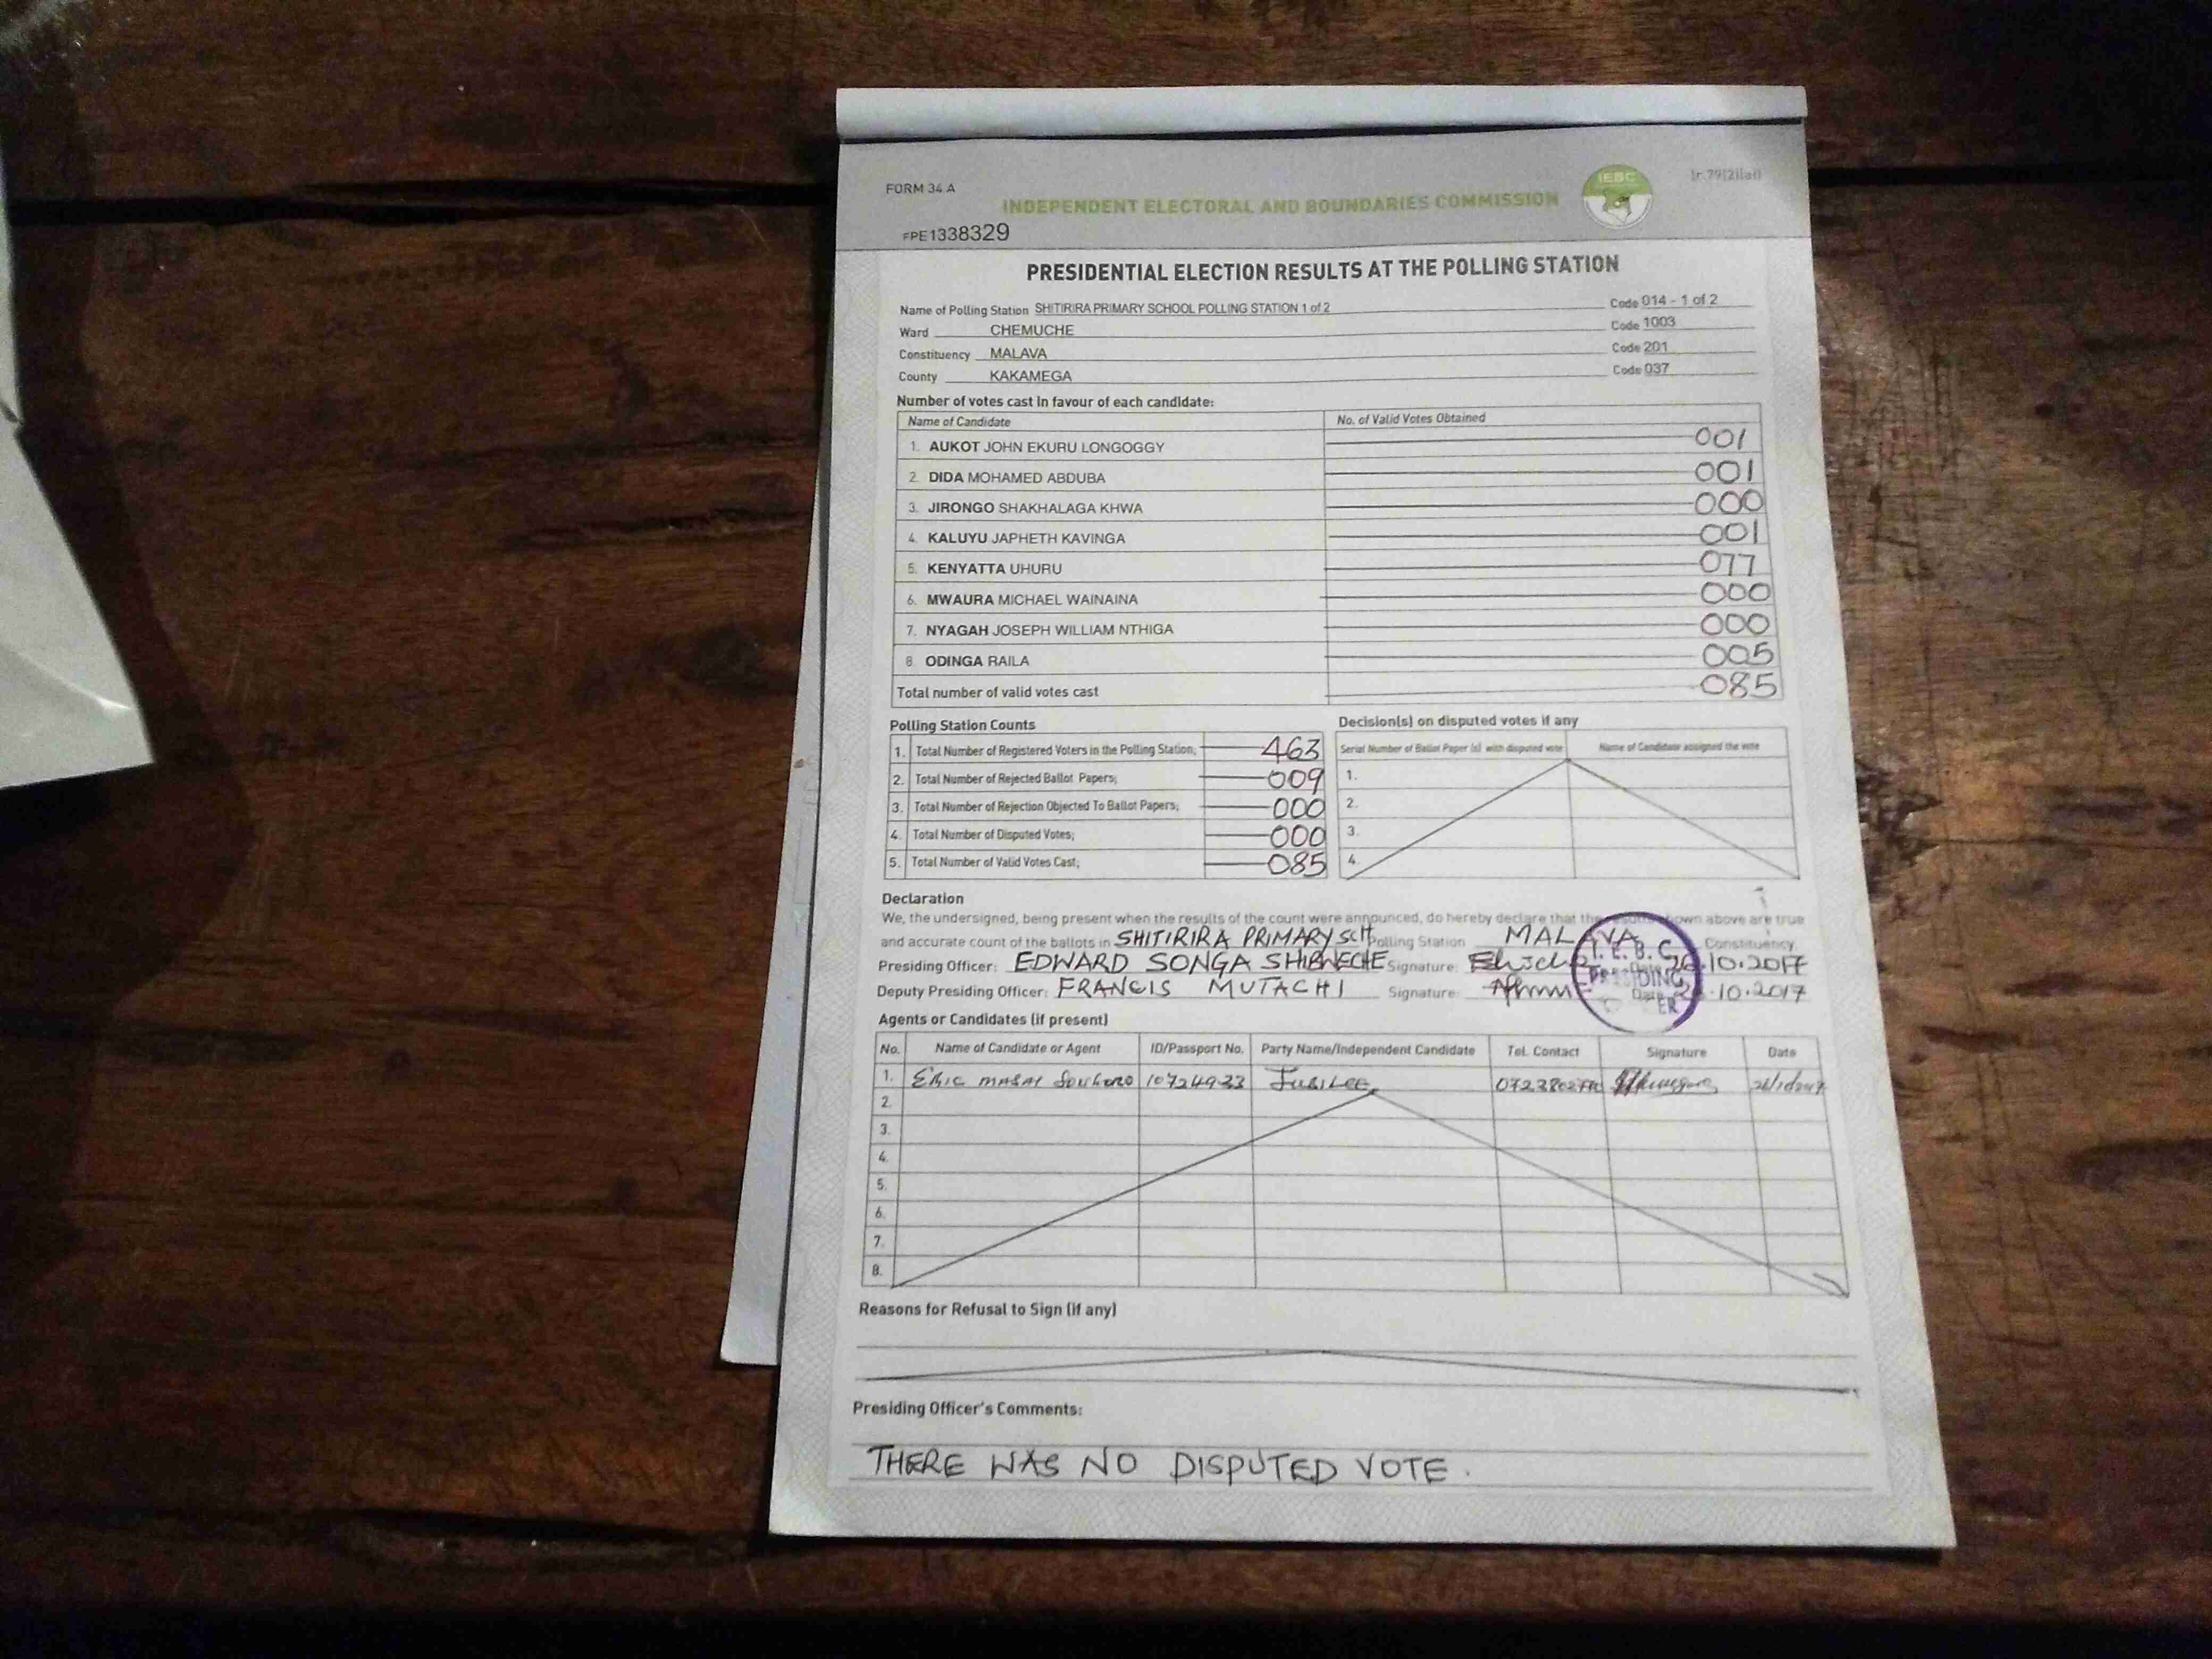 FORM 34 A
INDEPENDENT ELECTORAL AND BOUNDARIES COMMISSION
IEBC
FPE1338329
PRESIDENTIAL ELECTION RESULTS AT THE POLLING STATION
Name of Polling Station SHITIRIRA PRIMARY SCHOOL POLLING STATION 1 of 2 Code 014 - 1 of 2
Ward CHEMUCHE Code 1003
Constituency MALAVA Code 201
County KAKAMEGA Code 037
Number of votes cast in favour of each candidate:
Name of Candidate No. of Valid Votes Obtained
1. AUKOT JOHN EKURU LONGOGGY 001
2. DIDA MOHAMED ABDUBA 001
3. JIRONGO SHAKHALAGA KHWA 000
4. KALUYU JAPHETH KAVINGA 001
5. KENYATTA UHURU 077
6. MWAURA MICHAEL WAINAINA 000
7. NYAGAH JOSEPH WILLIAM NTHIGA 000
8. ODINGA RAILA 005
Total number of valid votes cast 085
Polling Station Counts
1. Total Number of Registered Voters in the Polling Station; 463
2. Total Number of Rejected Ballot Papers; 009
3. Total Number of Rejection Objected To Ballot Papers; 000
4. Total Number of Disputed Votes; 000
5. Total Number of Valid Votes Cast; 085
Decision(s) on disputed votes if any
Serial Number of Ballot Paper (s) with disputed vote Name of Candidate assigned the vote
1.
2.
3.
4.
Declaration
We, the undersigned, being present when the results of the count were announced, do hereby declare that the results shown above are true
and accurate count of the ballots in SHITIRIRA PRIMARY SCH Polling Station MALAVA Constituency.
Presiding Officer: EDWARD SONGA Signature: 26.10.2017
Deputy Presiding Officer: FRANCIS MUTACHI Signature: Date 26.10.2017
I.E.B.C
PRESIDING
Agents or Candidates (if present)
No. Name of Candidate or Agent ID/Passport No. Party Name/Independent Candidate Tel. Contact Signature Date
1. ERIC MASAI 10724933 JUBILEE
2.
3.
4.
5.
6.
7.
8.
Reasons for Refusal to Sign (if any)
Presiding Officer's Comments:
THERE WAS NO DISPUTED VOTE.